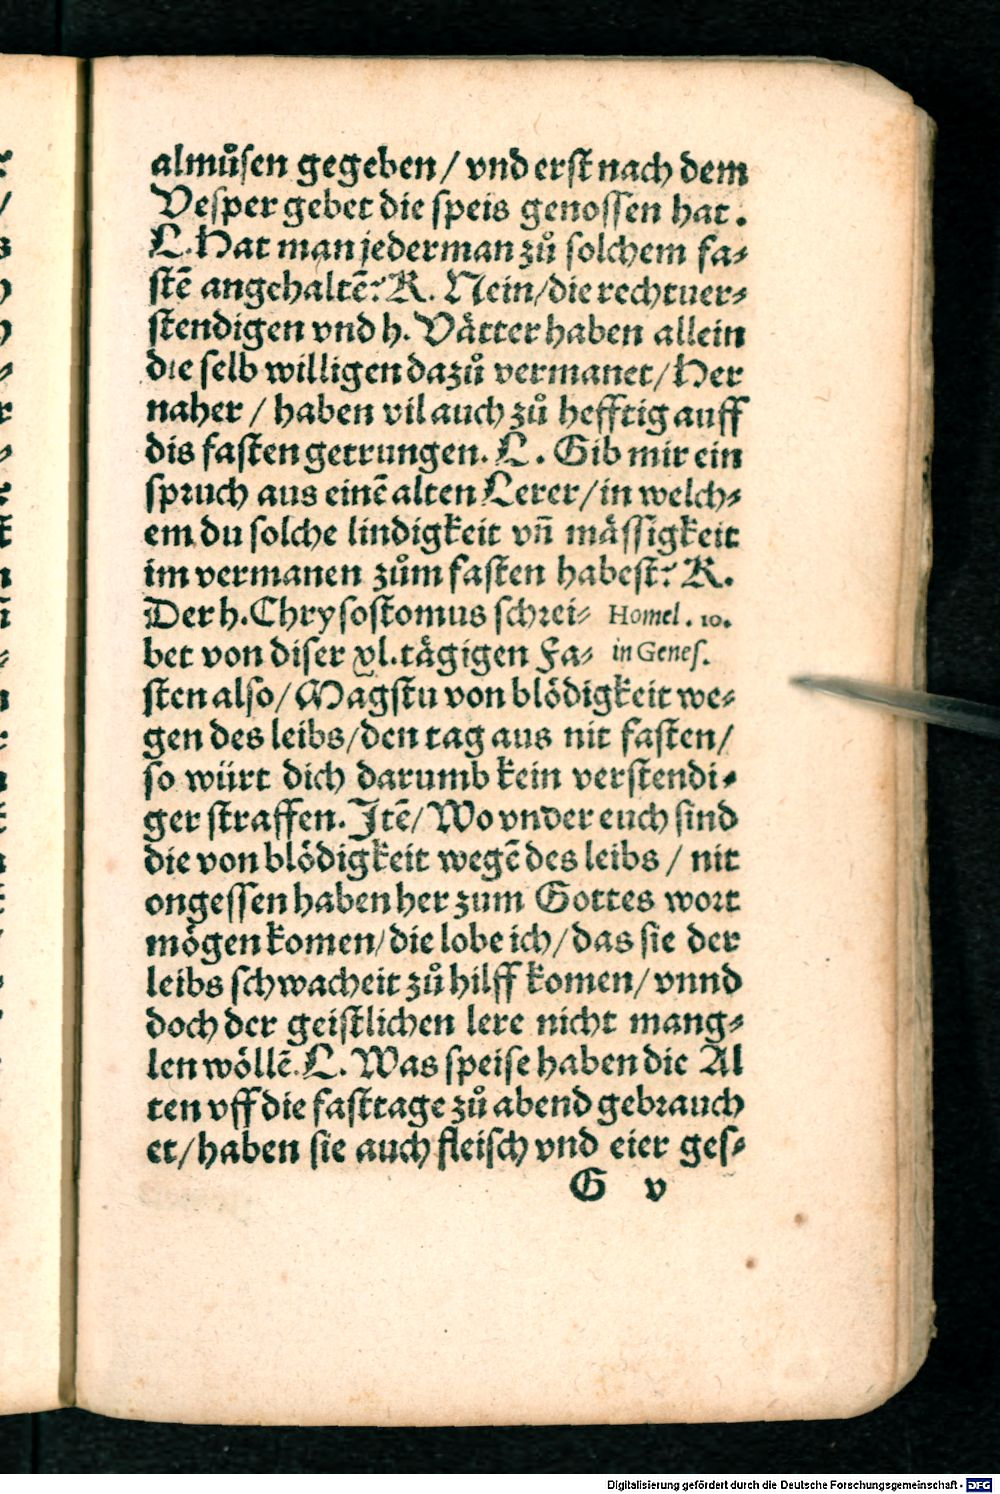 almůsen gegeben / vnd erst nach dem
Vesper gebet die speis genossen hat.
L. Hat man jederman zů solchem fa⸗
stẽ angehaltẽ? R. Nein / die rechtuer⸗
stendigen vnd h. Vätter haben allein
die selb willigen dazů vermanet / Her
naher / haben vil auch zů hefftig auff
dis fasten getrungen. L. Gib mir ein
spruch aus einẽ alten Lerer / in welch⸗
em du solche lindigkeit vñ mässigkeit
im vermanen zům fasten habest? R.
Der h. Chrysostomus schrei⸗ Homel. 10.
bet von diser xl. tägigen Fa⸗ in Genes.
sten also / Magstu von blödigkeit we⸗
gen des leibs / den tag aus nit fasten /
so würt dich darumb kein verstendi⸗
ger straffen. Itẽ / Wo vnder euch sind
die von blödigkeit wegẽ des leibs / nit
ongessen haben her zum Gottes wort
mögen komen / die lobe ich / das sie der
leibs schwacheit zů hilff komen / vnnd
doch der geistlichen lere nicht mang⸗
len wöllẽ. L. Was speise haben die Al
ten vff die fasttage zů abend gebrauch
et / haben sie auch fleisch vnd eier ges⸗
G v
Digitalisierung gefördert durch die Deutsche Forschungsgemeinschaft - DFG